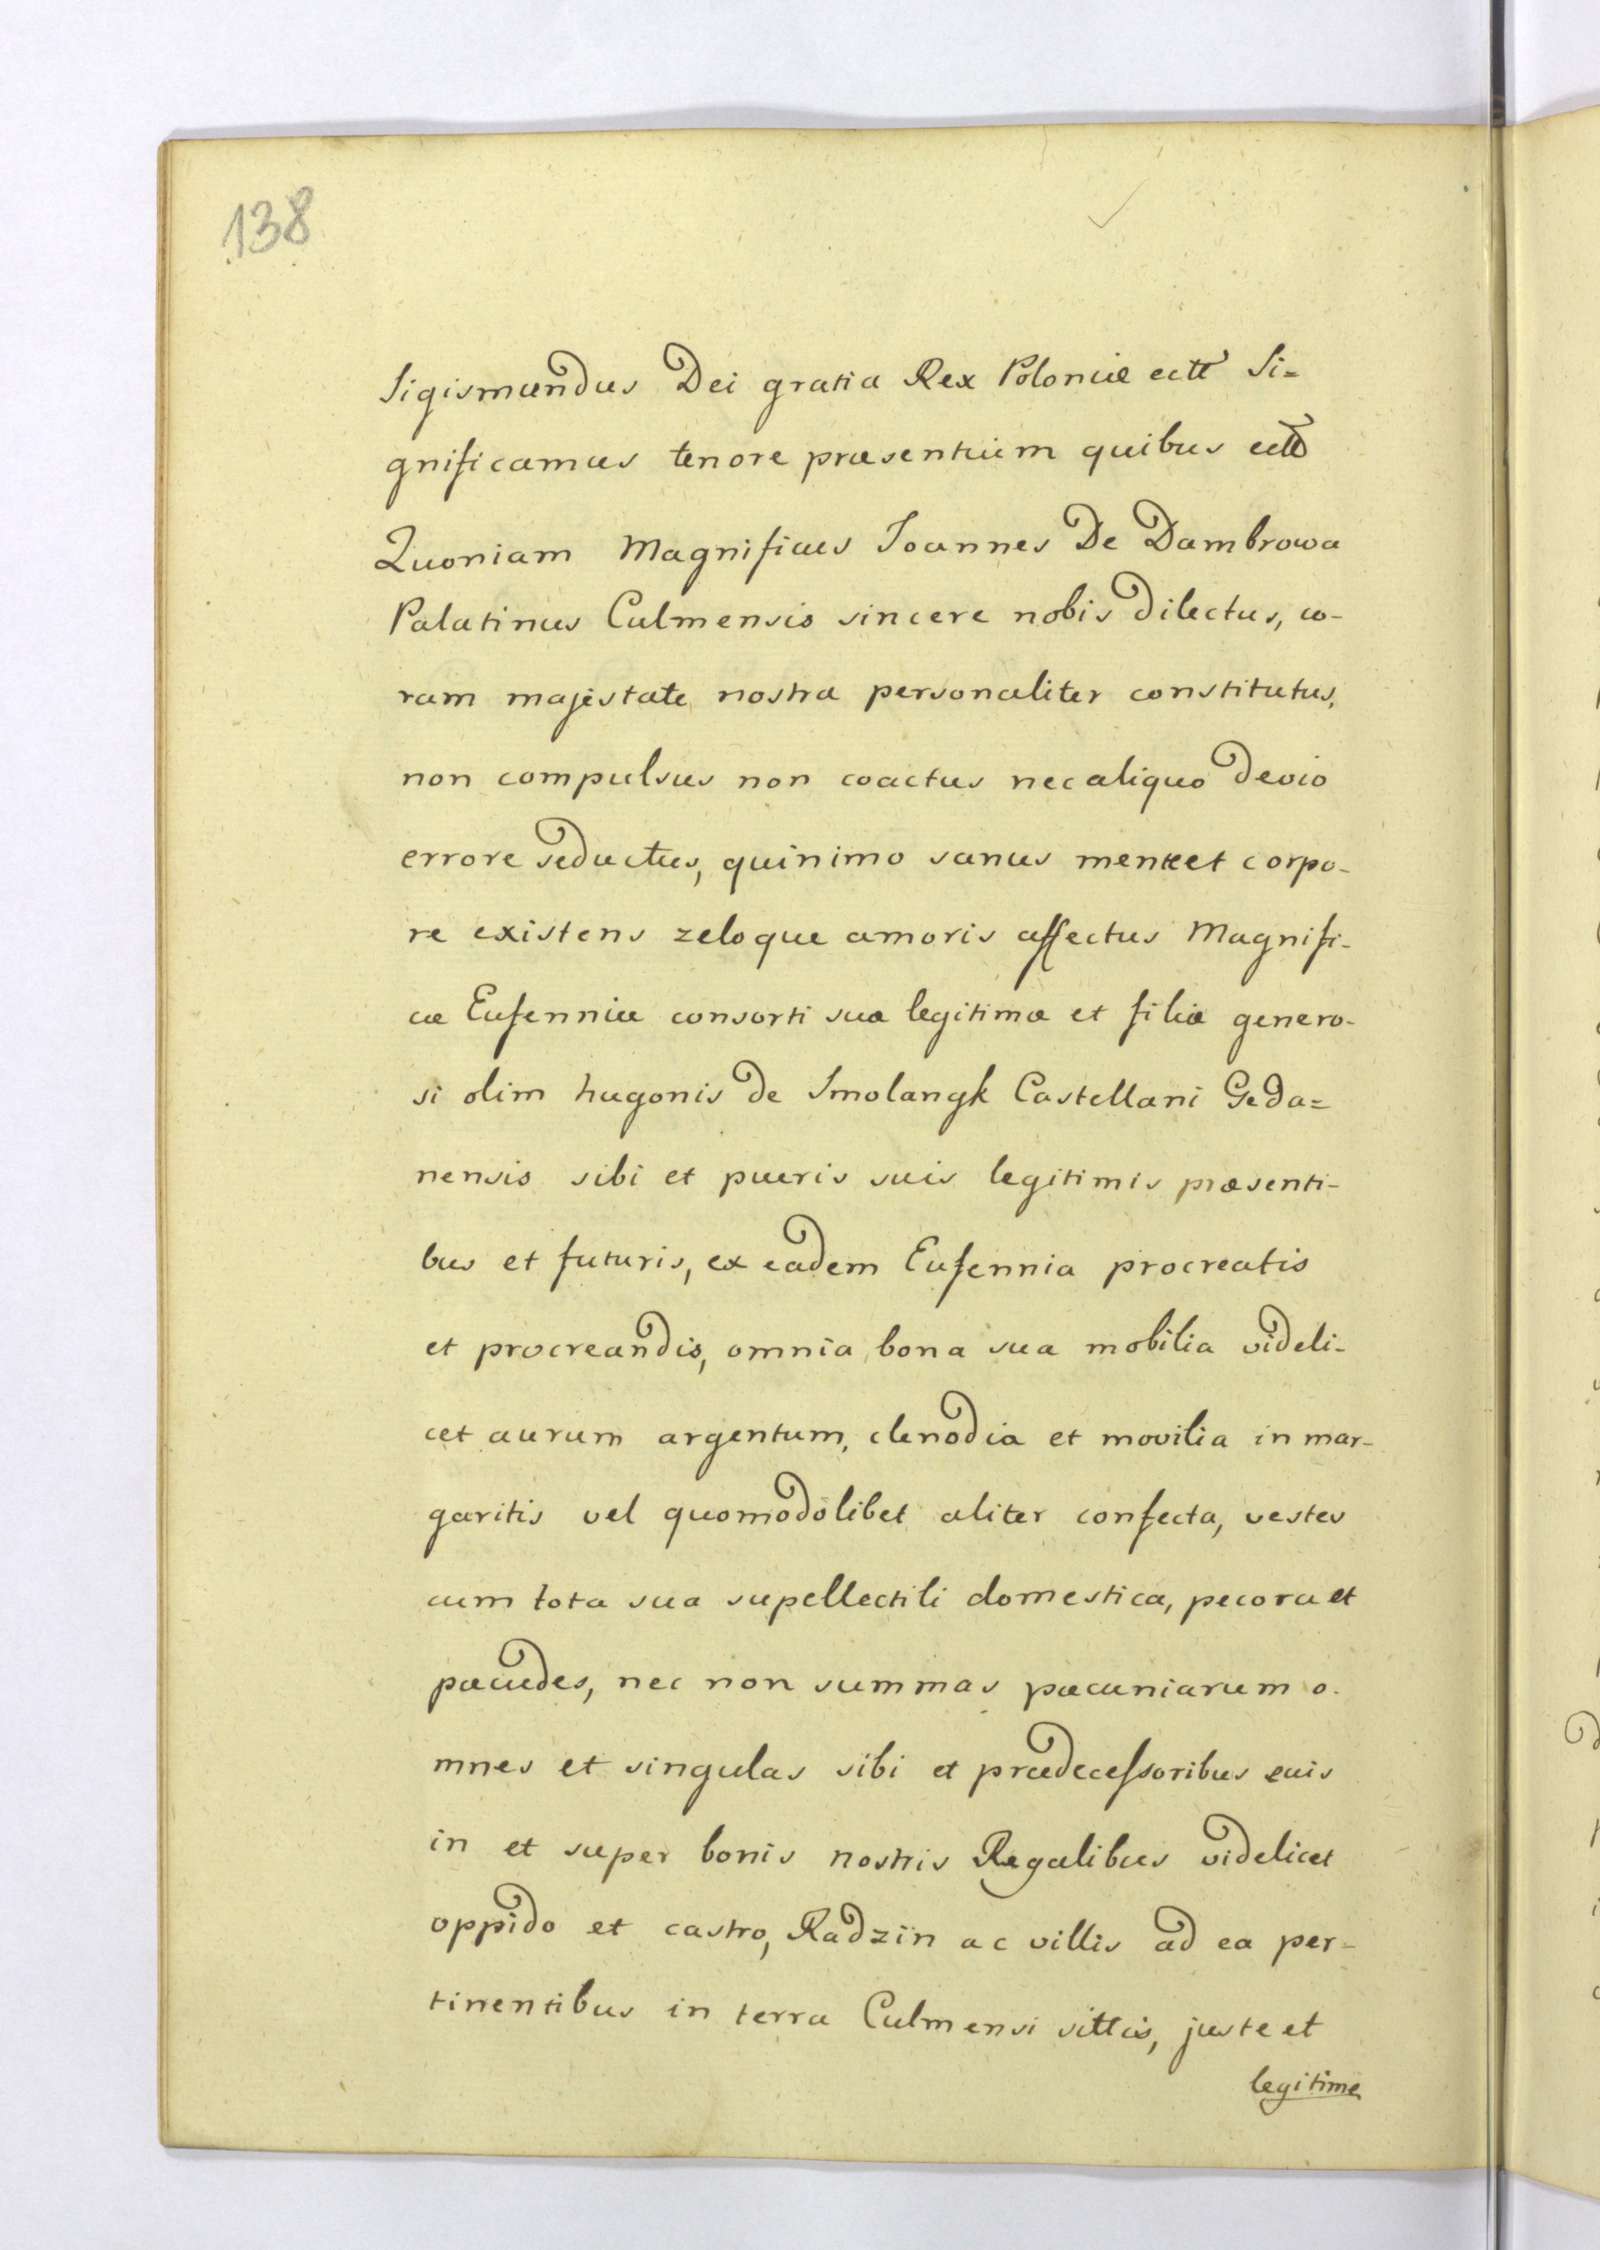 138
Sigismundus Dei gratia Rex Poloniæ ectt Si=
gnificamus tenore præsentium quibus ectt
Quoniam Magnificus Ioannes De Dambrowa
Palatinus Culmensis sincere nobis dilectus, co-
ram majestate nostra personaliter constitutus,
non compulsus non coactus nec aliquo devio
errore seductus, quinimo sanus mente et corpo-
re existens zeloque amoris affectus Magnifi-
cæ Eufenniæ consorti suæ legitimæ et filiæ genero-
si olim hugonis de Smolangk Castellani Geda=
nensis sibi et pueris suis legitimis præsenti-
bus et futuris, ex eadem Eufennia procreatis
et procreandis, omnia bona sua mobilia videli-
cet aurum argentum, clenodia et movilia in mar-
garitis vel quomodolibet aliter confecta, vestes
cum tota sua supellectili domestica, pecora et
pæcudes, nec non summas pæcuniarum o-
mnes et singulas sibi et prædecessoribus suis
in et super bonis nostris Regalibus videlicet
oppido et castro, Radzin ac villis ad ea per-
tinentibus in terra Culmensi sittis, juste et
legitime